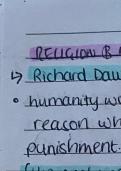 RELIGION B
↳ Richard Daw
• humanity wo
reason wh
punishment.